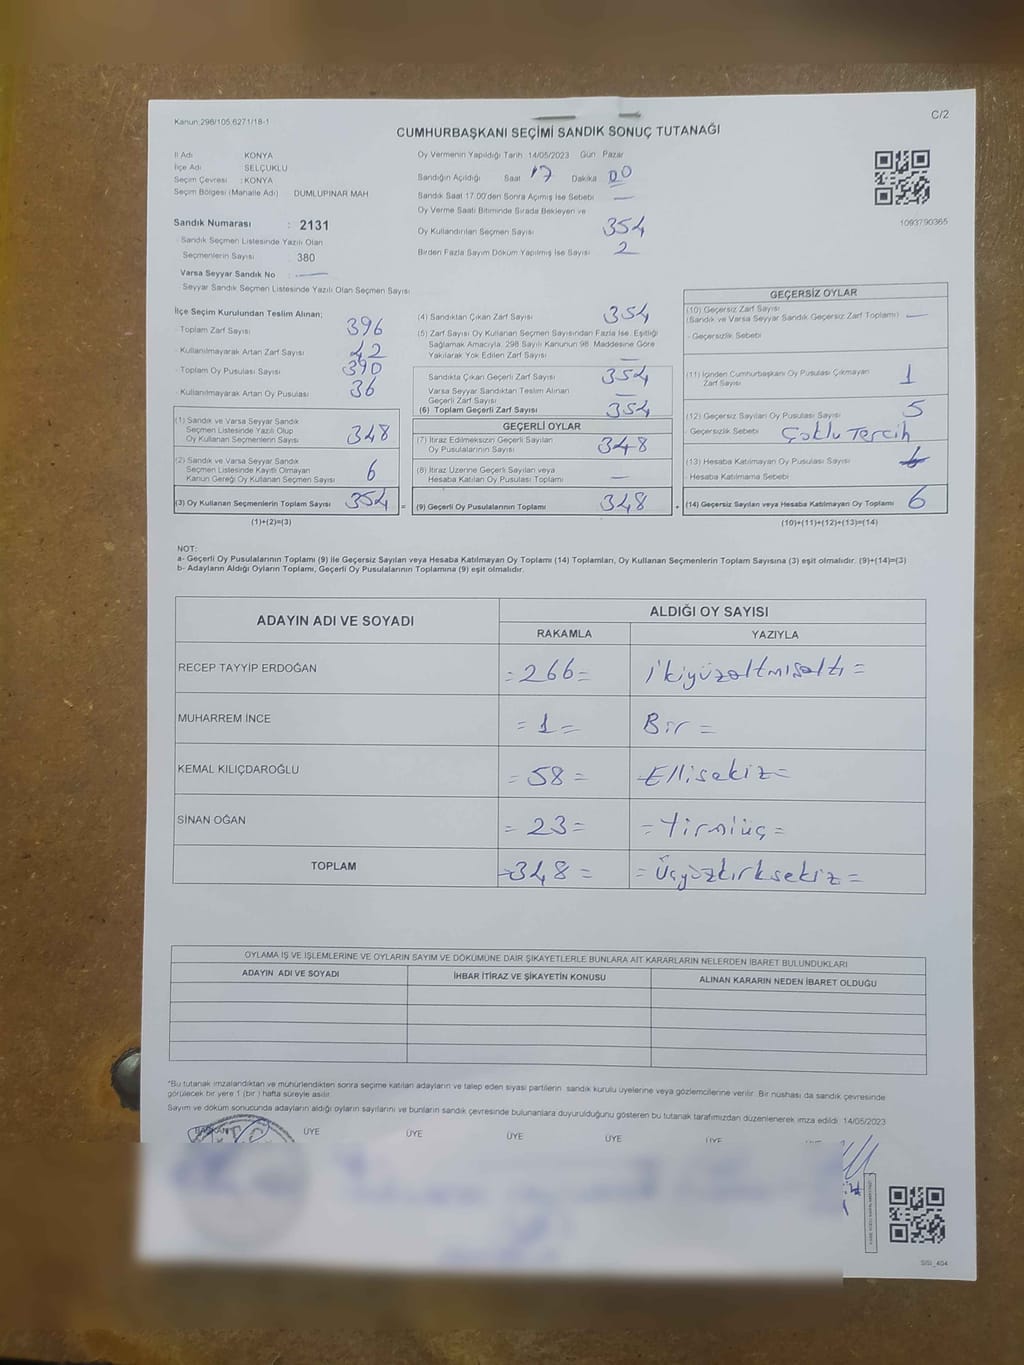 Kanun:298/105.6271/18-1
C/2
CUMHURBAŞKANI SEÇİMİ SANDIK SONUÇ TUTANAĞI
İl Adı KONYA
İlçe Adı SELÇUKLU
Seçim Çevresi : KONYA
Seçim Bölgesi (Mahalle Adı) DUMLUPINAR MAH
Sandık Numarası : 2131
Sandık Seçmen Listesinde Yazılı Olan
Seçmenlerin Sayısı 380
Varsa Seyyar Sandık No :
Seyyar Sandık Seçmen Listesinde Yazılı Olan Seçmen Sayısı
Oy Vermenin Yapıldığı Tarih 14/05/2023 Gün Pazar
Sandığın Açıldığı Saat 17 Dakika 00
Sandık Saat 17.00'den Sonra Açılmış İse Sebebi —
Oy Verme Saati Bitiminde Sırada Bekleyen ve
Oy Kullandırılan Seçmen Sayısı 354
Birden Fazla Sayım Döküm Yapılmış İse Sayısı 2
1093790365
İlçe Seçim Kurulundan Teslim Alınan;
- Toplam Zarf Sayısı 396
- Kullanılmayarak Artan Zarf Sayısı 42
- Toplam Oy Pusulası Sayısı 390
- Kullanılmayarak Artan Oy Pusulası 36
(1) Sandık ve Varsa Seyyar Sandık
Seçmen Listesinde Yazılı Olup
Oy Kullanan Seçmenlerin Sayısı 348
(2) Sandık ve Varsa Seyyar Sandık
Seçmen Listesinde Kayıtlı Olmayan
Kanun Gereği Oy Kullanan Seçmen Sayısı 6
(3) Oy Kullanan Seçmenlerin Toplam Sayısı 354 =
(1)+(2)=(3)
(4) Sandıktan Çıkan Zarf Sayısı 354
(5) Zarf Sayısı Oy Kullanan Seçmen Sayısından Fazla İse, Eşitliği
Sağlamak Amacıyla, 298 Sayılı Kanunun 98. Maddesine Göre
Yakılarak Yok Edilen Zarf Sayısı —
Sandıkta Çıkan Geçerli Zarf Sayısı 354
Varsa Seyyar Sandıktan Teslim Alınan
Geçerli Zarf Sayısı —
(6) Toplam Geçerli Zarf Sayısı 354
GEÇERLİ OYLAR
(7) İtiraz Edilmeksizin Geçerli Sayılan
Oy Pusulalarının Sayısı 348
(8) İtiraz Üzerine Geçerli Sayılan veya
Hesaba Katılan Oy Pusulası Toplamı —
(9) Geçerli Oy Pusulalarının Toplamı 348 +
GEÇERSİZ OYLAR
(10) Geçersiz Zarf Sayısı
(Sandık ve Varsa Seyyar Sandık Geçersiz Zarf Toplamı) —
- Geçersizlik Sebebi
(11) İçinden Cumhurbaşkanı Oy Pusulası Çıkmayan
Zarf Sayısı 1
(12) Geçersiz Sayılan Oy Pusulası Sayısı 5
- Geçersizlik Sebebi Çoklu Tercih
(13) Hesaba Katılmayan Oy Pusulası Sayısı
- Hesaba Katılmama Sebebi
(14) Geçersiz Sayılan veya Hesaba Katılmayan Oy Toplamı 6
(10)+(11)+(12)+(13)=(14)
NOT:
a- Geçerli Oy Pusulalarının Toplamı (9) ile Geçersiz Sayılan veya Hesaba Katılmayan Oy Toplamı (14) Toplamları, Oy Kullanan Seçmenlerin Toplam Sayısına (3) eşit olmalıdır. (9)+(14)=(3)
b- Adayların Aldığı Oyların Toplamı, Geçerli Oy Pusulalarının Toplamına (9) eşit olmalıdır.
ADAYIN ADI VE SOYADI ALDIĞI OY SAYISI
RAKAMLA YAZIYLA
RECEP TAYYİP ERDOĞAN =266= İkiyüzaltmışaltı =
MUHARREM İNCE =1= Bir =
KEMAL KILIÇDAROĞLU =58= Ellisekiz=
SİNAN OĞAN =23= =Yirmiüç=
TOPLAM =348= =Üçyüzkırksekiz=
OYLAMA İŞ VE İŞLEMLERİNE VE OYLARIN SAYIM VE DÖKÜMÜNE DAİR ŞİKAYETLERLE BUNLARA AİT KARARLARIN NELERDEN İBARET BULUNDUKLARI
ADAYIN ADI VE SOYADI İHBAR İTİRAZ VE ŞİKAYETİN KONUSU ALINAN KARARIN NEDEN İBARET OLDUĞU
*Bu tutanak imzalandıktan ve mühürlendikten sonra seçime katılan adayların ve talep eden siyasi partilerin sandık kurulu üyelerine veya gözlemcilerine verilir. Bir nüshası da sandık çevresinde
görülecek bir yere 1 (bir ) hafta süreyle asılır.
Sayım ve döküm sonucunda adayların aldığı oyların sayılarını ve bunların sandık çevresinde bulunanlara duyurulduğunu gösteren bu tutanak tarafımızdan düzenlenerek imza edildi. 14/05/2023
BAŞKAN ÜYE ÜYE ÜYE ÜYE ÜYE
SISI_404